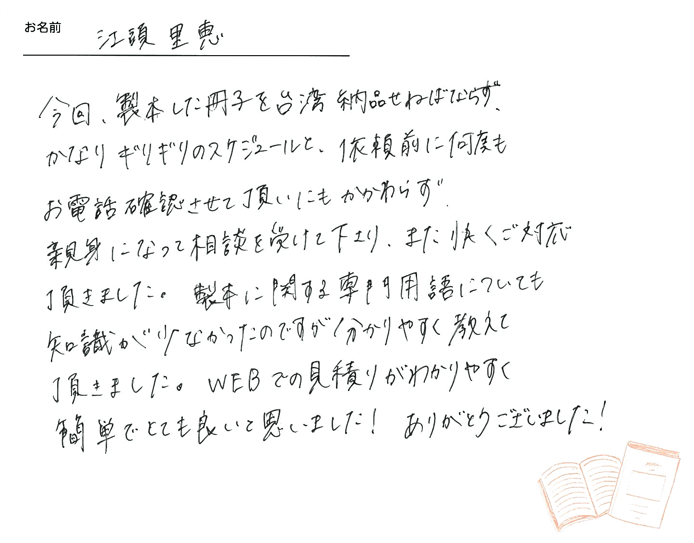 お名前 江頭 里恵
今回、製本した冊子を台湾納品せねばならず、
かなりギリギリのスケジュールと、依頼前に何度も
お電話確認させて頂いにもかかわらず、
親身になって相談を受けて下さり、また快くご対応
頂きました。 製本に関する専門用語についても
知識が少なかったのですが分かりやすく教えて
頂きました。WEBでの見積りがわかりやすく
簡単でとても良いと思いました！ ありがとうございました！